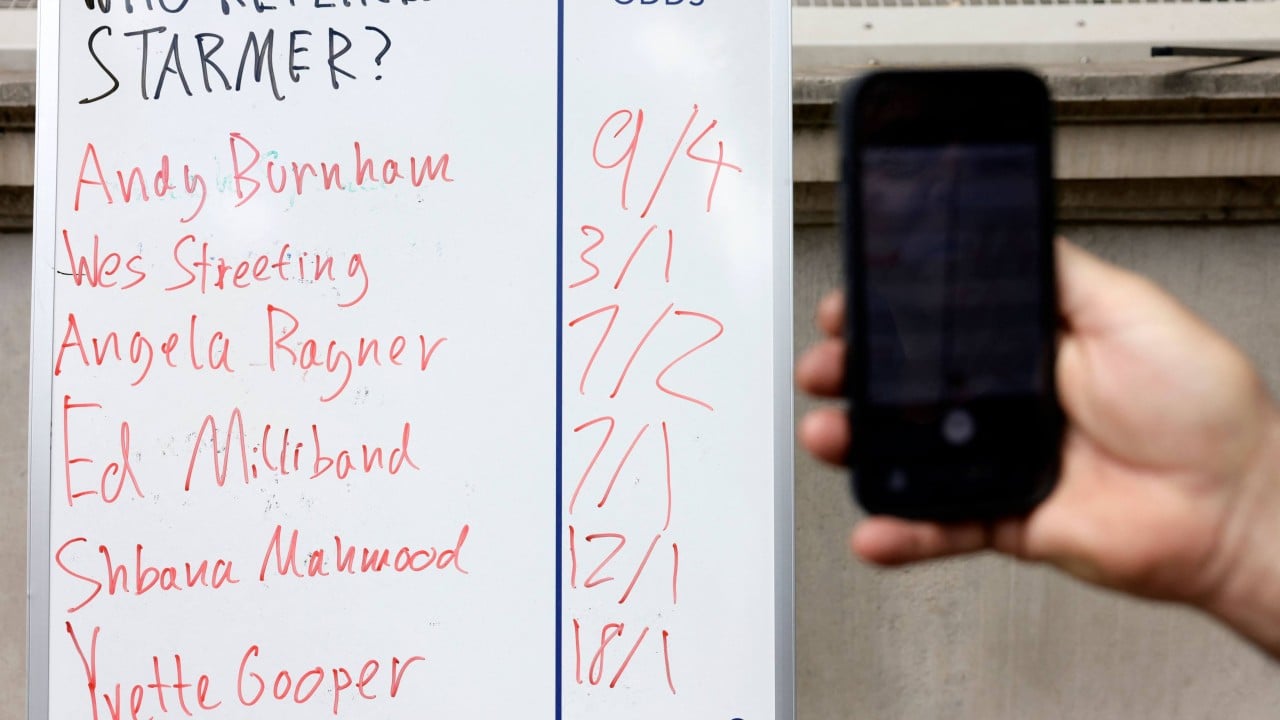 STARMER?
ODDS
Andy Burnham 9/4
Wes Streeting 3/1
Angela Ragner 7/2
Ed Milliband 7/1
Shbana Mahmood 12/1
Yvette Cooper 18/1